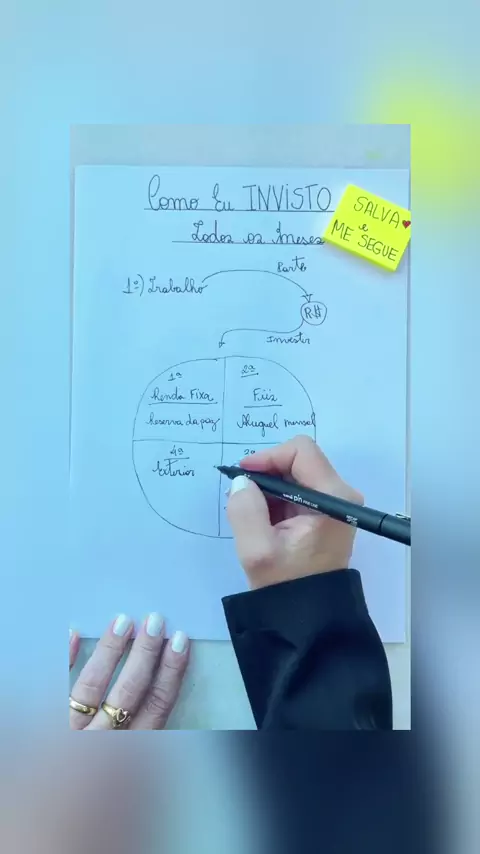 Como Eu INVISTO
Todos os meses
SALVA
e
ME SEGUE
Parte
1º) Trabalho
R$
Investir
1º
Renda Fixa
Reserva da paz
2º
Fiis
Aluguel mensal
4º
Exterior
uni PIN